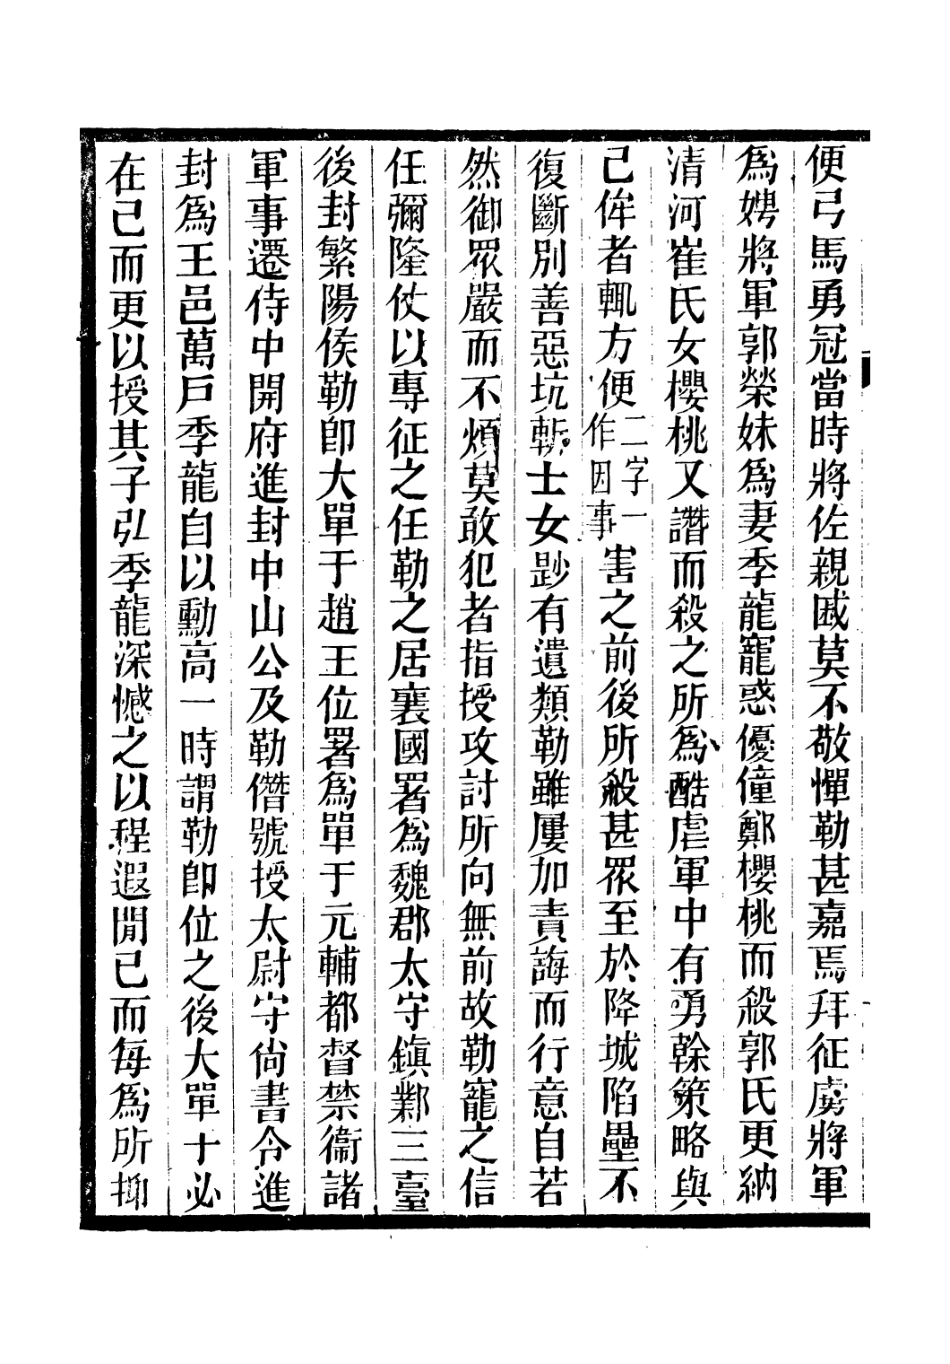 便弓馬勇冠當時將佐親戚莫不敬憚勒甚嘉焉拜征虜將軍
爲娉將軍郭榮妹爲妻季龍寵惑優僮鄭櫻桃而殺郭氏更納
清河崔氏女櫻桃又譖而殺之所爲酷虐軍中有勇榦策略與
己侔者輒方便二字一作因事害之前後所殺甚眾至於降城陷壘不
復斷別善惡坑斬士女尠有遺類勒雖屢加責誨而行意自若
然御眾嚴而不煩莫敢犯者指授攻討所向無前故勒寵之信
任彌隆仗以專征之任勒之居襄國署爲魏郡太守鎮鄴三臺
後封繁陽侯勒卽大單于趙王位署爲單于元輔都督禁衞諸
軍事遷侍中開府進封中山公及勒僭號授太尉守尚書令進
封爲王邑萬戸季龍自以勳高一時謂勒卽位之後大單十必
在己而更以授其子弘季龍深憾之以程遐閒己而每爲所抑